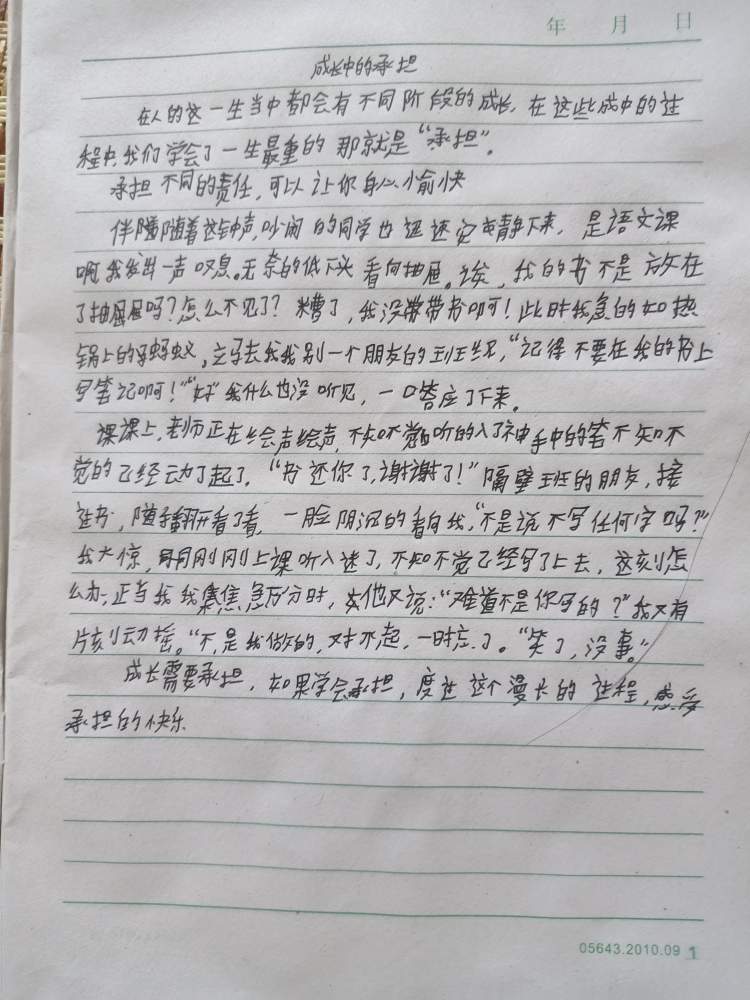 年 月 日
成长中的承担
在人的这一生当中都会有不同阶段的成长,在这些成中的过
程中,我们学会了一生最重的 那就是“承担”。
承担 不同的责任,可以让你身心愉快
伴随着 钟声,吵闹的同学也迅速安静下来, 是语文课
啊我发出一声叹息。无奈的低下头 看向抽屉。诶, 我的书不是放在
了抽屉吗?怎么不见了? 糟了,我没带书啊!此时我急的如热
锅上的蚂蚁,立马去找 别一个朋友的班级,“记得不要在我的书上
写笔记啊!”“好”我什么也没听见,一口答应了下来。
课上,老师正在绘声绘声,不知不觉 听的入了神手中的笔不知不
觉的已经动了起了,“书还你了,谢谢了!”隔壁班的朋友,接
过书,随手翻开看了看,一脸阴沉的看向我,“不是说不写任何字吗?”
我大惊, 刚刚上课听入迷了,不知不觉已经写了上去,这刻怎
么办,正当我 焦急万分时, 他又说:“难道不是你写的?”我又有
片刻动摇。“不,是我做的,对不起,一时忘了。“笑了,没事。”
成长需要承担,如果学会承担,度过这个漫长的过程,感受
承担的快乐
05643.2010.09 1